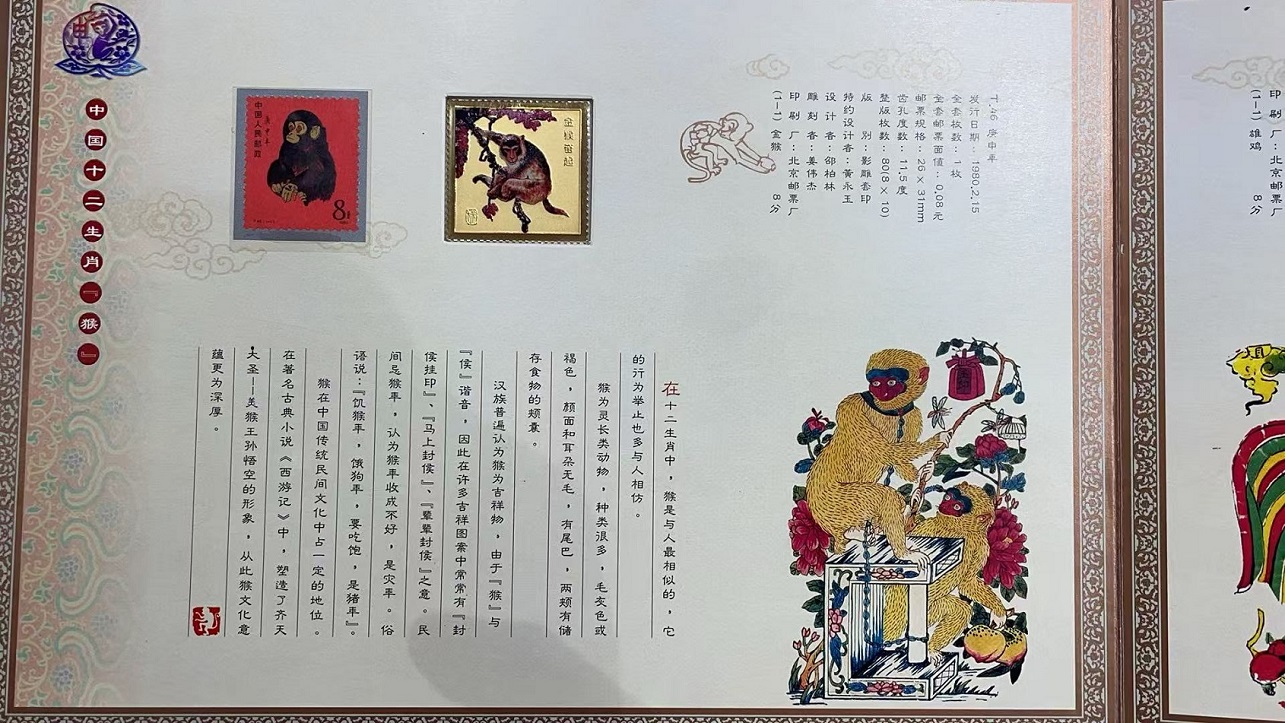 申
中国十二生肖『猴』
中国人民邮政
庚申年
8分
金猴奋起
T.46 庚申年
发行日期：1980.2.15
全套枚数：1枚
全套邮票面值：0.08元
邮票规格：26×31mm
齿孔度数：11.5度
整版枚数：80(8×10)
版　别：影雕套印
特约设计者：黄永玉
设计者：邵柏林
雕刻者：姜伟杰
印刷者：北京邮票厂
(1-1) 金猴　8分
在十二生肖中，猴是与人最相似的，它
的行为举止也多与人相仿。
猴为灵长类动物，种类很多，毛灰色或
褐色，颜面和耳朵无毛，有尾巴，两颊有储
存食物的颊囊。
汉族普遍认为猴为吉祥物，由于『猴』与
『侯』谐音，因此在许多吉祥图案中常常有『封
侯挂印』、『马上封侯』、『辈辈封侯』之意。民
间忌猴年，认为猴年收成不好，是灾年。俗
语说：『饥猴年，饿狗年，要吃饱，是猪年』。
猴在中国传统民间文化中占一定的地位。
在著名古典小说《西游记》中，塑造了齐天
大圣——美猴王孙悟空的形象，从此猴文化意
蕴更为深厚。
印刷厂：北京邮票厂
(1-1) 雄鸡　8分